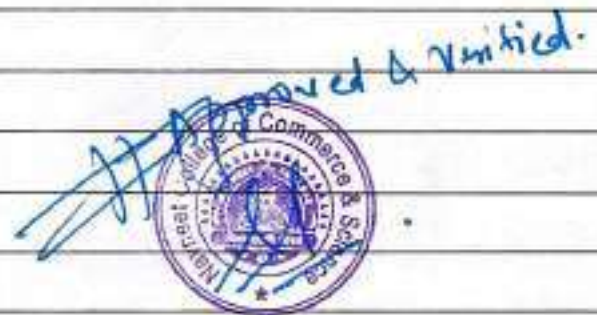 Approved & Verified.
Navneet College of Commerce & Science